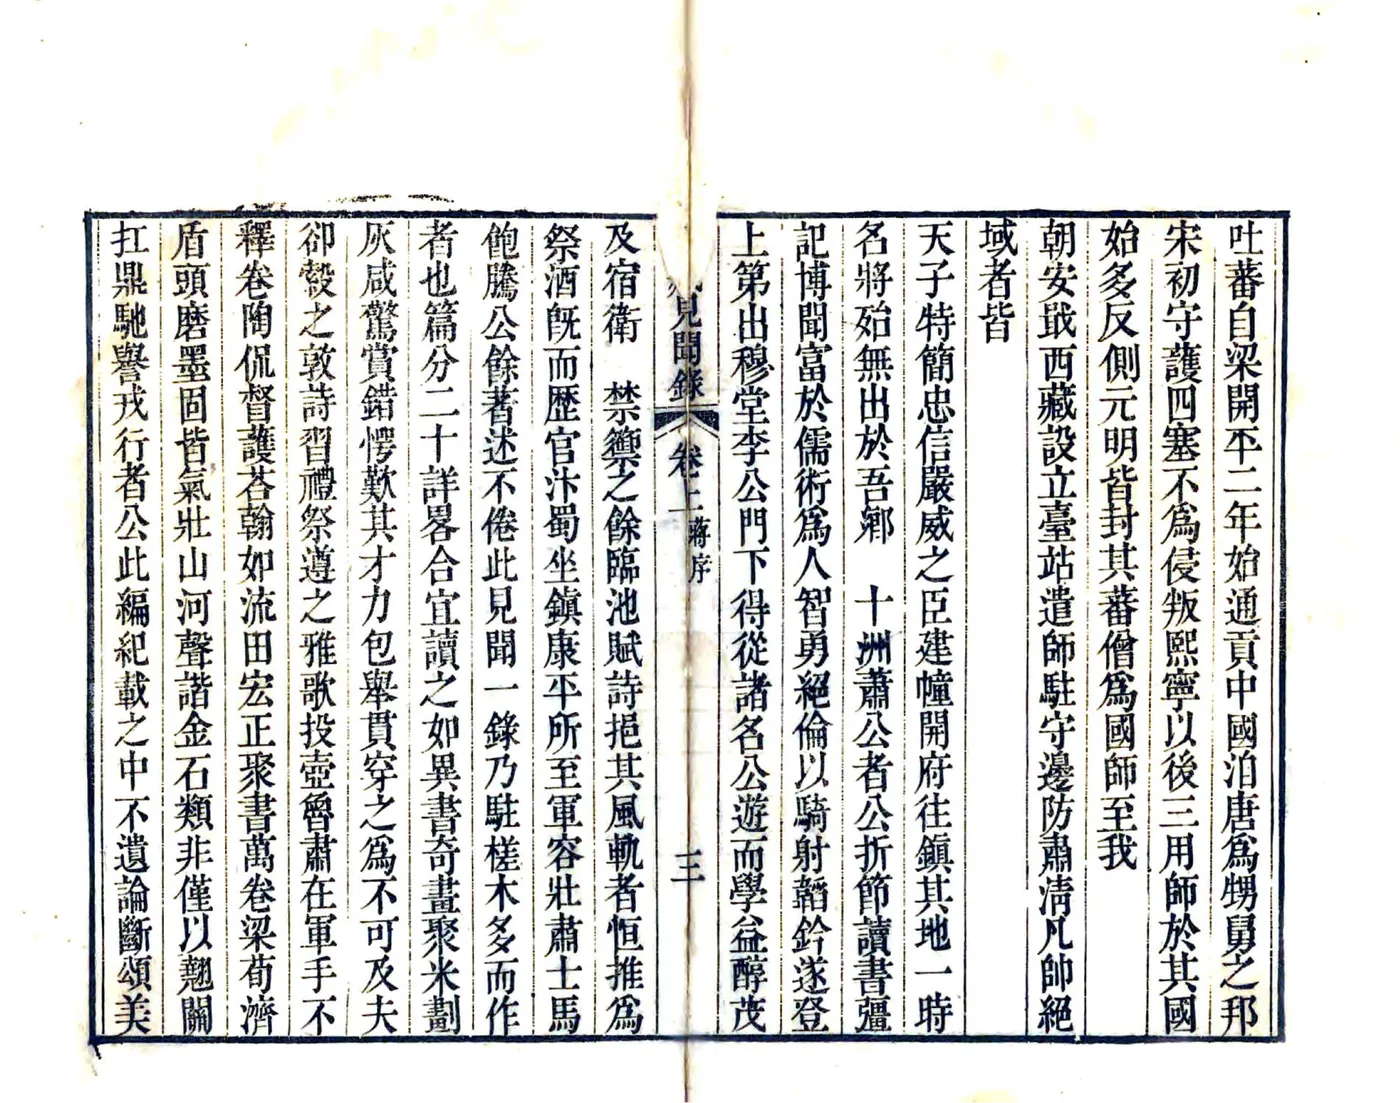 吐蕃自梁開平二年始通貢中國洎唐爲甥舅之邦
宋初守護四塞不爲侵叛熙寧以後三用師於其國
始多反側元明皆封其蕃僧爲國師至我
朝安戢西藏設立臺站遣師駐守邊防肅淸凡帥絕
域者皆
天子特簡忠信嚴威之臣建幢開府往鎭其地一時
名將殆無出於吾鄕　十洲蕭公者公折節讀書彊
記博聞富於儒術爲人智勇絕倫以騎射韜鈐遂登
上第出穆堂李公門下得從諸名公遊而學益醇茂
見聞錄　卷上　蔣序　三
及宿衛　禁籞之餘臨池賦詩挹其風軌者恒推爲
祭酒旣而歴官汴蜀坐鎭康平所至軍容壯肅士馬
飽騰公餘著述不倦此見聞一錄乃駐槎木多而作
者也篇分二十詳畧合宜讀之如異書奇畫聚米劃
灰咸驚賞錯愕歎其才力包舉貫穿之爲不可及夫
卻縠之敦詩習禮祭遵之雅歌投壺魯肅在軍手不
釋卷陶侃督護荅翰如流田宏正聚書萬卷梁荀濟
盾頭磨墨固皆氣壯山河聲諧金石類非僅以翹關
扛鼎馳譽戎行者公此編紀載之中不遺論斷頌美